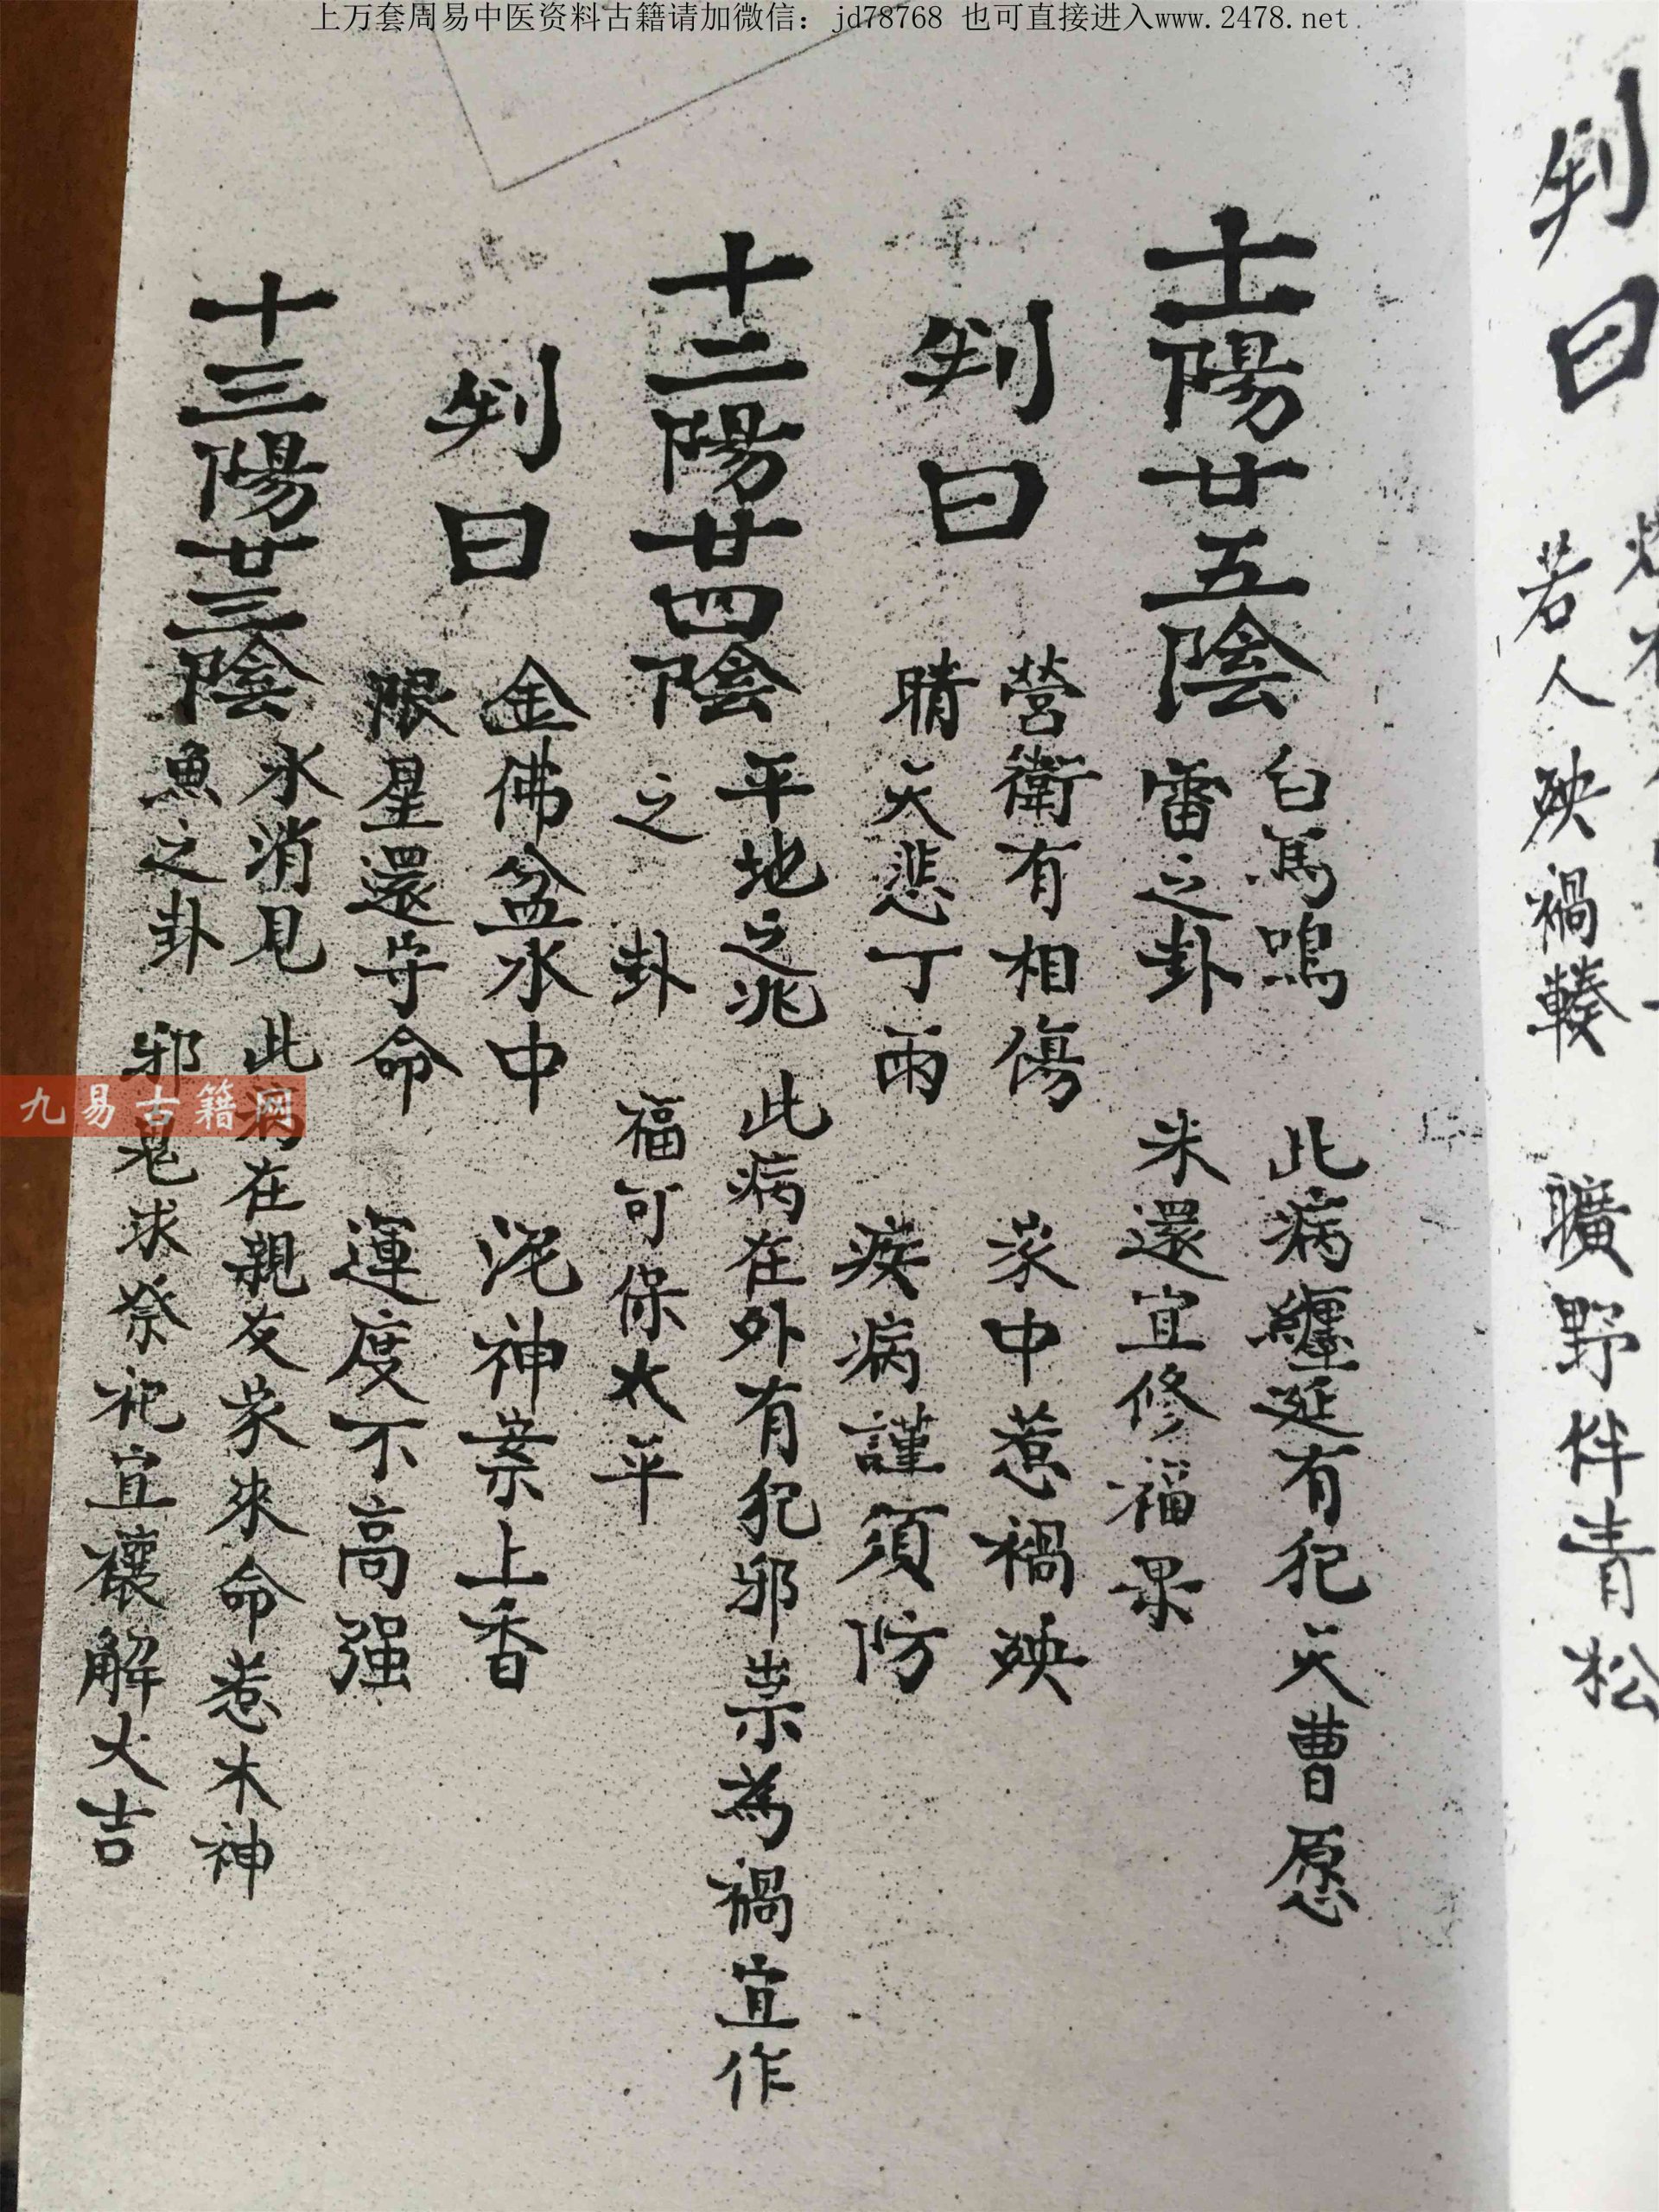 上万套周易中医资料古籍请加微信：jd78768 也可直接进入www.2478.net
判曰 若人殃禍輳 曠野伴青松
十一陽廿五陰 白馬鳴 此病纏延有犯天曹愿
雷之卦 未還宜修福果
判曰 營衛有相傷 家中惹禍殃
晴天悲丁雨 疾病謹須防
十二陽廿四陰 平地之兆 此病在外有犯邪祟為禍宜作
之卦 福可保太平
判曰 金佛盆水中 泥神案上香
限星還守命 運度不高强
十三陽廿三陰 水消見 此病在親友家來命惹木神
魚之卦 邪鬼求祭祀宜禳解大吉
九易古籍网